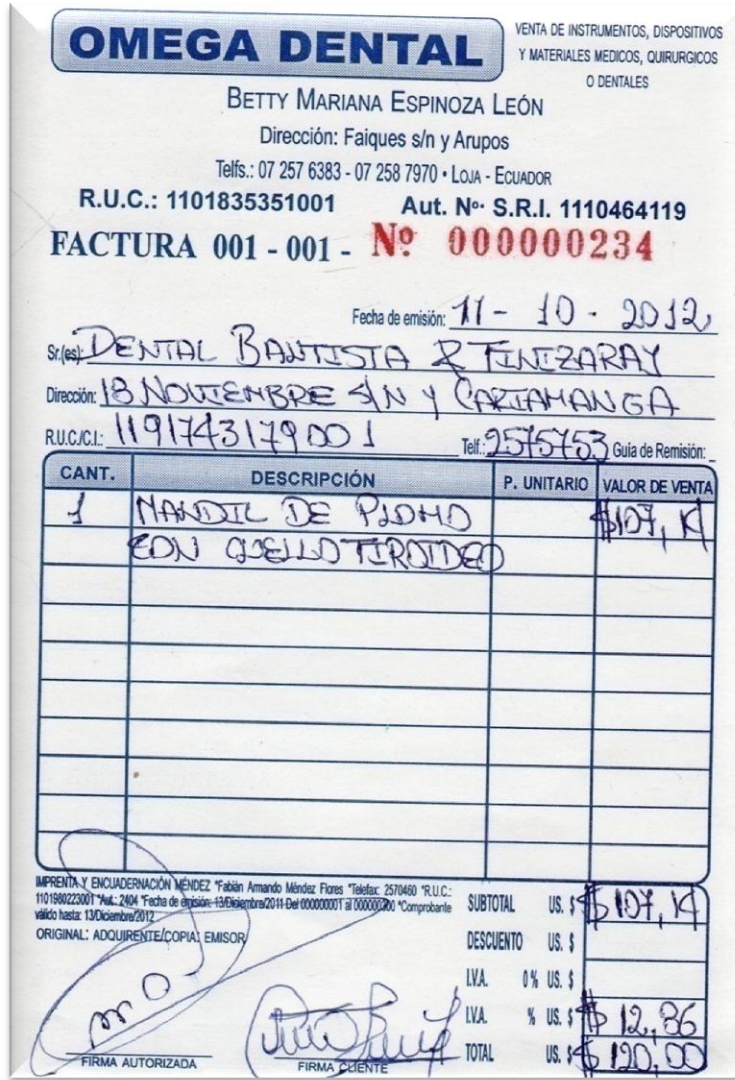 OMEGA DENTAL
VENTA DE INSTRUMENTOS, DISPOSITIVOS
Y MATERIALES MEDICOS, QUIRURGICOS
O DENTALES
BETTY MARIANA ESPINOZA LEÓN
Dirección: Faiques s/n y Arupos
Telfs.: 07 257 6383 - 07 258 7970 • LOJA - ECUADOR
R.U.C.: 1101835351001 Aut. Nº. S.R.I. 1110464119
FACTURA 001 - 001 - Nº 000000234
Fecha de emisión: 11 - 10 - 2012
Sr.(es): DENTAL BAUTISTA & FINIZARAY
Dirección: 18 NOVIEMBRE S/N Y CARIAMANGA
R.U.C./C.I.: 1191743179001 Telf.: 2575753 Guia de Remisión:
CANT. DESCRIPCIÓN P. UNITARIO VALOR DE VENTA
1 MANDIL DE PLOMO $107,14
CON CUELLO TIROIDEO
IMPRENTA Y ENCUADERNACIÓN MÉNDEZ *Fabián Armando Méndez Flores *Telefax: 2570460 *R.U.C.:
1101980223001 *Aut.: 2404 *Fecha de emisión: 13/Diciembre/2011 Del 000000001 al 000000300 *Comprobante
válido hasta: 13/Diciembre/2012
ORIGINAL: ADQUIRENTE/COPIA: EMISOR
SUBTOTAL US. $ $107,14
DESCUENTO US. $
I.V.A. 0% US. $
I.V.A. % US. $ $12,86
TOTAL US. $ $120,00
FIRMA AUTORIZADA
FIRMA CLIENTE